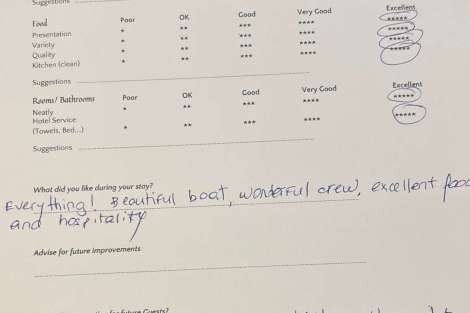 Suggestions
Food Poor OK Good Very Good Excellent
Presentation * ** *** **** *****
Variety * ** *** **** *****
Quality * ** *** **** *****
Kitchen (clean) * ** *** **** *****
Suggestions
Rooms/ Bathrooms Poor OK Good Very Good Excellent
Neatly * ** *** **** *****
Hotel Service
(Towels, Bed...) * ** *** **** *****
Suggestions
What did you like during your stay?
Everything! Beautiful boat, wonderful crew, excellent food
and hospitality
Advise for future improvements
for future Guests?